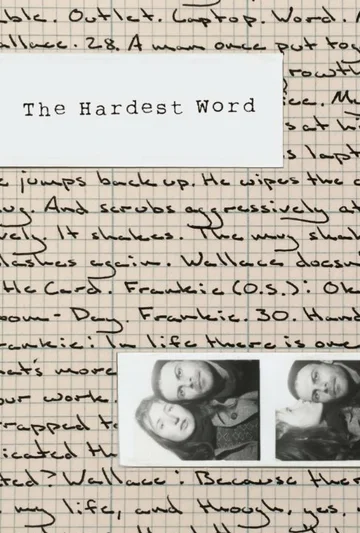 ble. Outlet. Laptop. Word.
allace. 28. A man once put tog
rowth
The Hardest Word
ice. My
s at hi
s lapt
e jumps back up. He wipes the
ug. And scrubs aggressively at
vely It shakes. The mug shak
lashes again. Wallace doesn
tle Card. Frankie (O.S.): Ok
oom - Day. Frankie. 30. Hand
rankie: In life there is one
hat's more
our work.
rapped to
icated th
ted? Wallace: Because ther
my life, and though, yes,